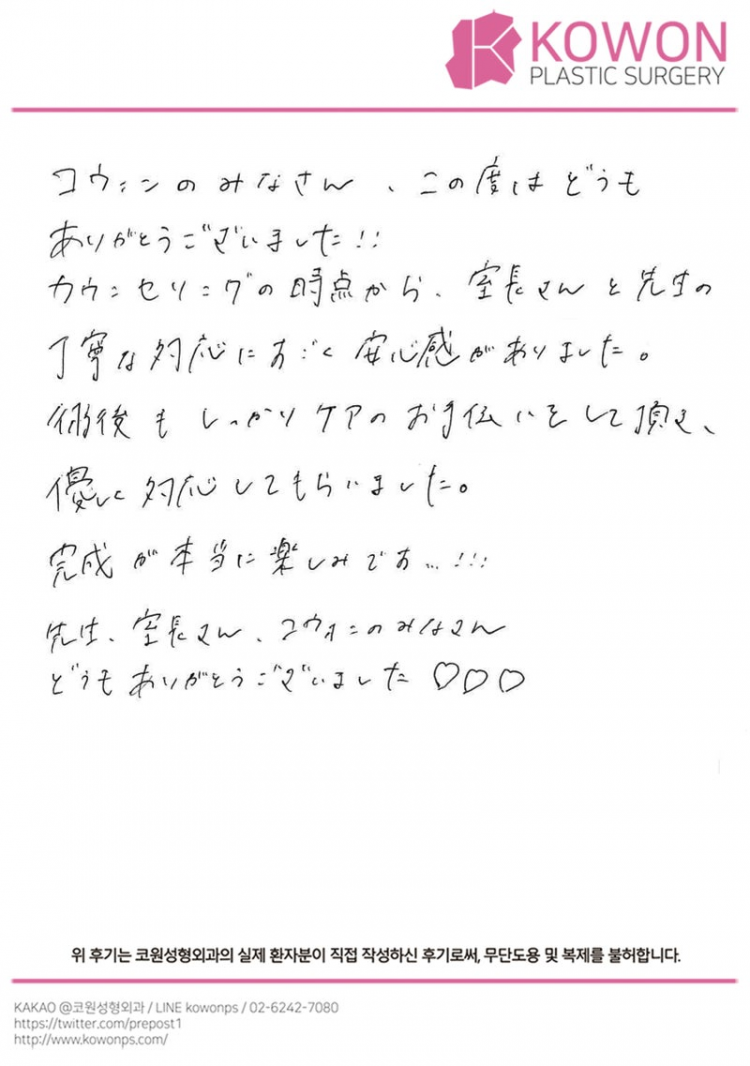 KOWON
PLASTIC SURGERY
コウォンのみなさん、この度はどうも
ありがとうございました!!
カウンセリングの時点から、室長さんと先生の
丁寧な対応にすごく安心感がありました。
術後もしっかりケアのお手伝いをして頂き、
優しく対応してもらいました。
完成が本当に楽しみです…!!!
先生、室長さん、コウォンのみなさん
どうもありがとうございました♡♡♡
위 후기는 코원성형외과의 실제 환자분이 직접 작성하신 후기로써, 무단도용 및 복제를 불허합니다.
KAKAO @코원성형외과 / LINE kowonps / 02-6242-7080
https://twitter.com/prepost1
http://www.kowonps.com/